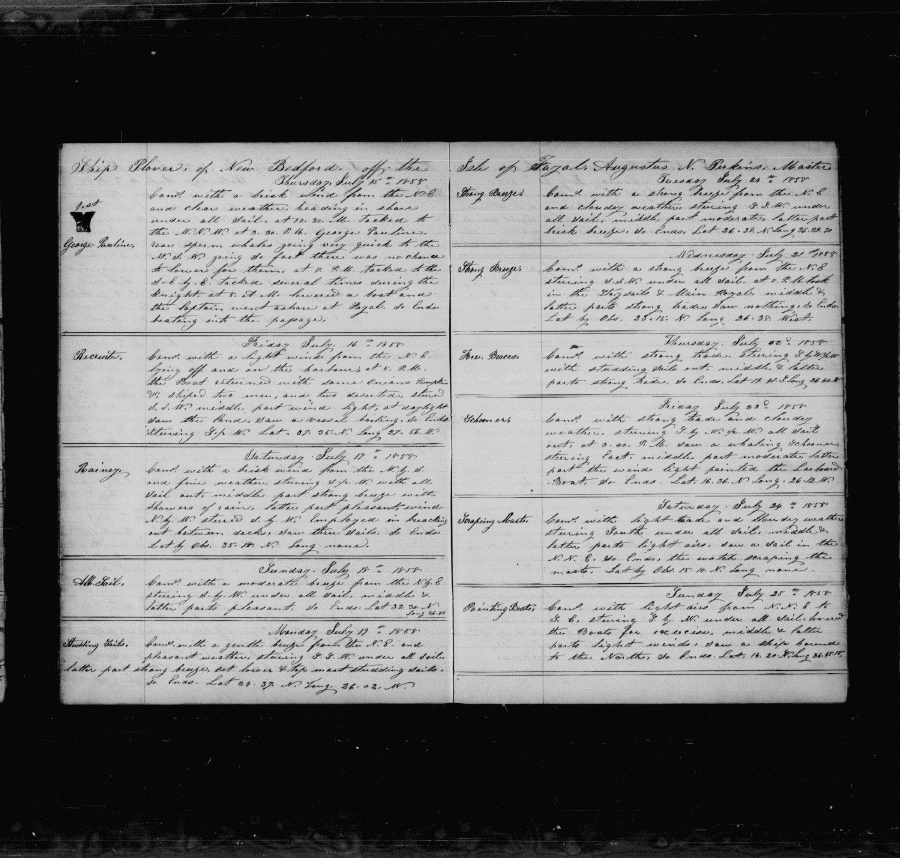 Ship Plover, of New Bedford, off the
Thursday, July 15th 1858
lost
George Pauline,
Comd. with a brisk wind from the N.E.
and clear weather, heading in shore
under all sail, at 12.30 M. tacked to
the N.N.W. at 3.30 P.M. George Pauline,
saw sperm whales going very quick to the
going so fast there was no chance
to lower for them, at P.M. tacked to the
S.E. by E. tacked several times during the
knight, at 8. A M lowered a boat and
the Captain went ashore at Fayal. So Ends
beating into the passage,
Friday July 16th 1858
Recruits,
Comd. with a light wind from the N.E.
lying off and on the harbour, at P.M.
the Boat returned with some Onions Pumpkins
&c, shiped two men, and two deserted, stered
S.S.W. middle part wind light, at daylight
saw the land, saw a vessel boiling. So Ends
Steering S W. Lat. 37.35. N. Long 27.56. W.
Saturday. July 17th 1858
Rainey,
Comd. with a brisk wind from the
and fine weather, steering W. with all
sail out, middle part strong breeze with
showers of rain, latter part pleasant, wind
N. by W. steered S. by W. Employed in breaking
out between decks, saw three sails. So Ends.
Lat by Obs. 35.18. N. Long none.
Sunday. July 18th 1858
All Sail,
Comd. with a moderate breeze from the N. by E
steering S. by W. under all sail, middle &
latter parts pleasant. So Ends. Lat 32 30. N
Long 26.30
Monday July 19th 1858
Studding Sails,
Comd. with a gentle breeze from the N.E. and
pleasant weather, steering S.S.W. under all sail,
latter part strong breeze, set lower & top mast studding sails.
So Ends. Lat 29.37. N. Long 26.02. W
Isle of Fayal, Augustus N. Perkins, Master
Tuesday July 20th 1858
Strong Breeze,
Comd. with a strong breeze from the N.E
and cloudy weather steering S.S.W. under
all sail, middle part moderate, latter part
brisk breeze, So Ends. Lat 26.32. N. Long 26.22.30
Wednesday. July 21st 1858
Strong Breeze
Comd. with a strong breeze from the N.E
steering S.S.W. under all sail, at P.M. took
in the Stagsails & Main Royal, middle &
latter parts strong trades, saw nothing, So Ends.
Lat by Obs. 23.15. N. Long 26.38. West.
Thursday. July 22d 1858
Comd. with strong trade, steering
with studding sails out, middle & latter
parts strong trade. So Ends. Lat 19. Long 26.40.W
Friday July 23d 1858
Schooner,
Comd. with strong trade and cloudey
weather, steering S. by W. all sail
out, at 3.40. P.M. saw a whaling Schooner
steering East, middle part moderate, latter
part the wind light, painted the Larboard
Boat, So Ends. Lat. 16.36. N Long. 26.12. W.
Saturday. July 24th 1858
Scrapeing Masts,
Comd. with light trade and cloudey weather
stering South under all sail, middle &
latter parts light airs, saw a sail in the
N.N.E. So Ends, the watch scraping the
masts. Lat by Obs 15.10. N. Long none.
Sunday July 25th 1858
Painting Boats,
Comd. with light airs from N.N.E to
S.E. steering S. by W. under all sail, lowered
the Boats for exercise, middle & latter
parts light winds, saw a ship bound
to the North, So Ends. Lat. 14.20. N. Long 26.45.15.